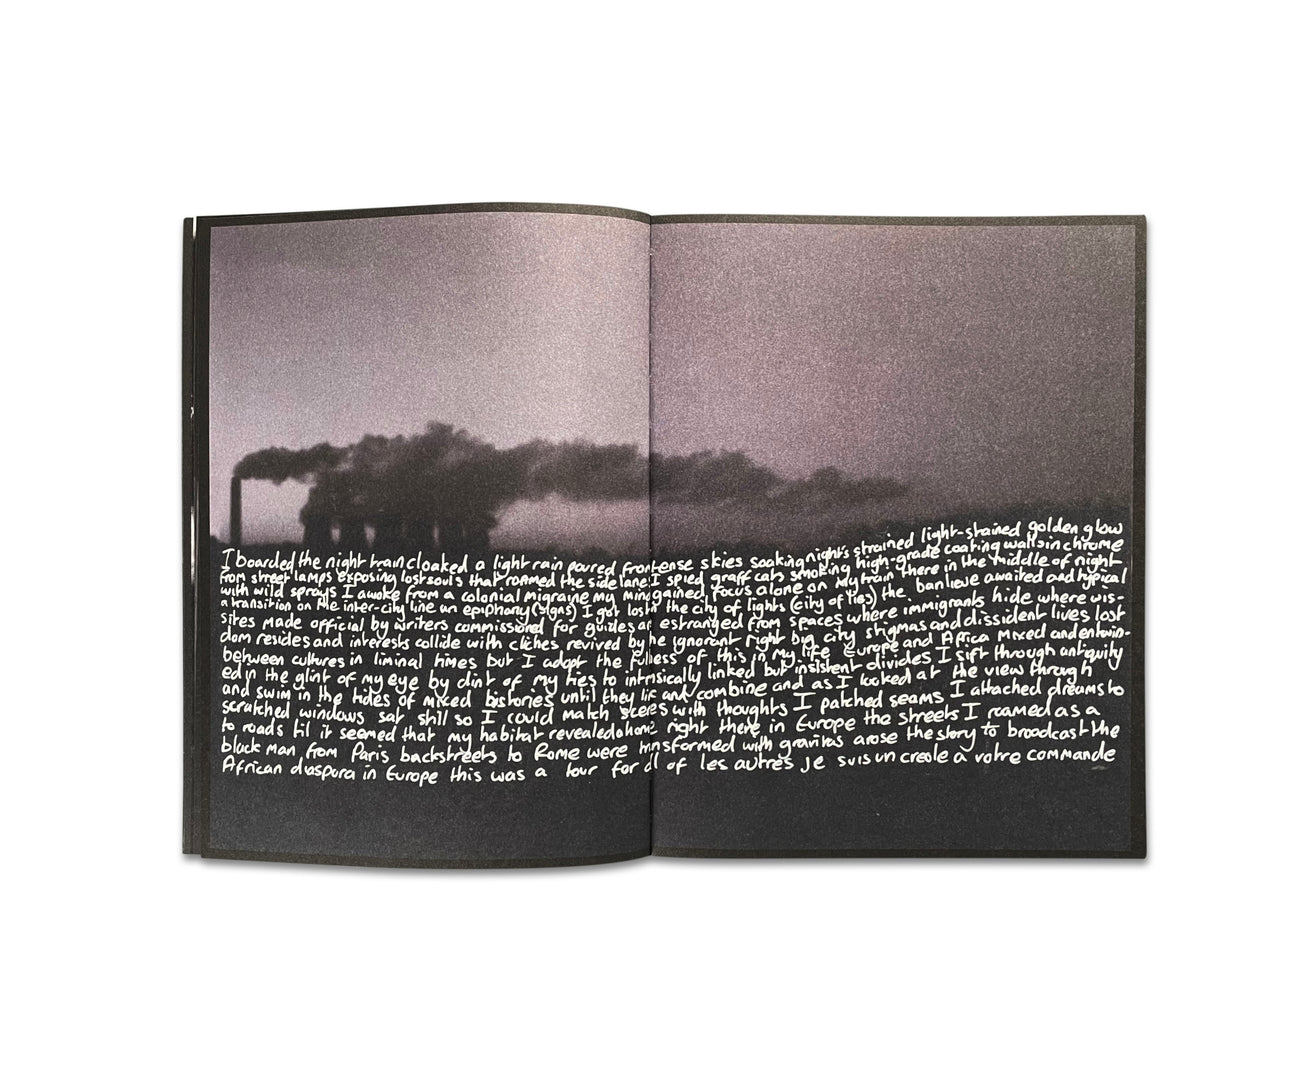 I boarded the night train cloaked a light rain poured from tense skies soaking nights strained light-stained golden glow
from street lamps exposing lost souls that roamed the side lane I spied graff cats smoking high-grade coating walls in chrome
with wild sprays I awoke from a colonial migraine my mind gained focus alone on my train there in the middle of night
a transition on the inter-city line an epiphany (signs) I got lost in the city of lights (city of lies) the banlieue awaited and typical
sites made official by writers commissioned for guides are estranged from spaces where immigrants hide where wis-
dom resides and interests collide with cliches revived by the ignorant right big city stigmas and dissident lives lost
between cultures in liminal times but I adopt the fullness of this in my life Europe and Africa mixed and entwin-
ed in the glint of my eye by dint of my ties to intrinsically linked but insistent divides I sift through antiquity
and swim in the tides of mixed histories until they lift and combine and as I looked at the view through
scratched windows sat still so I could match scenes with thoughts I patched seams I attached dreams to
to roads til it seemed that my habitat revealed a home right there in Europe the streets I roamed as a
black man from Paris backstreets to Rome were transformed with gravitas arose the story to broadcast the
African diaspora in Europe this was a tour for all of les autres je suis un creole a votre commande